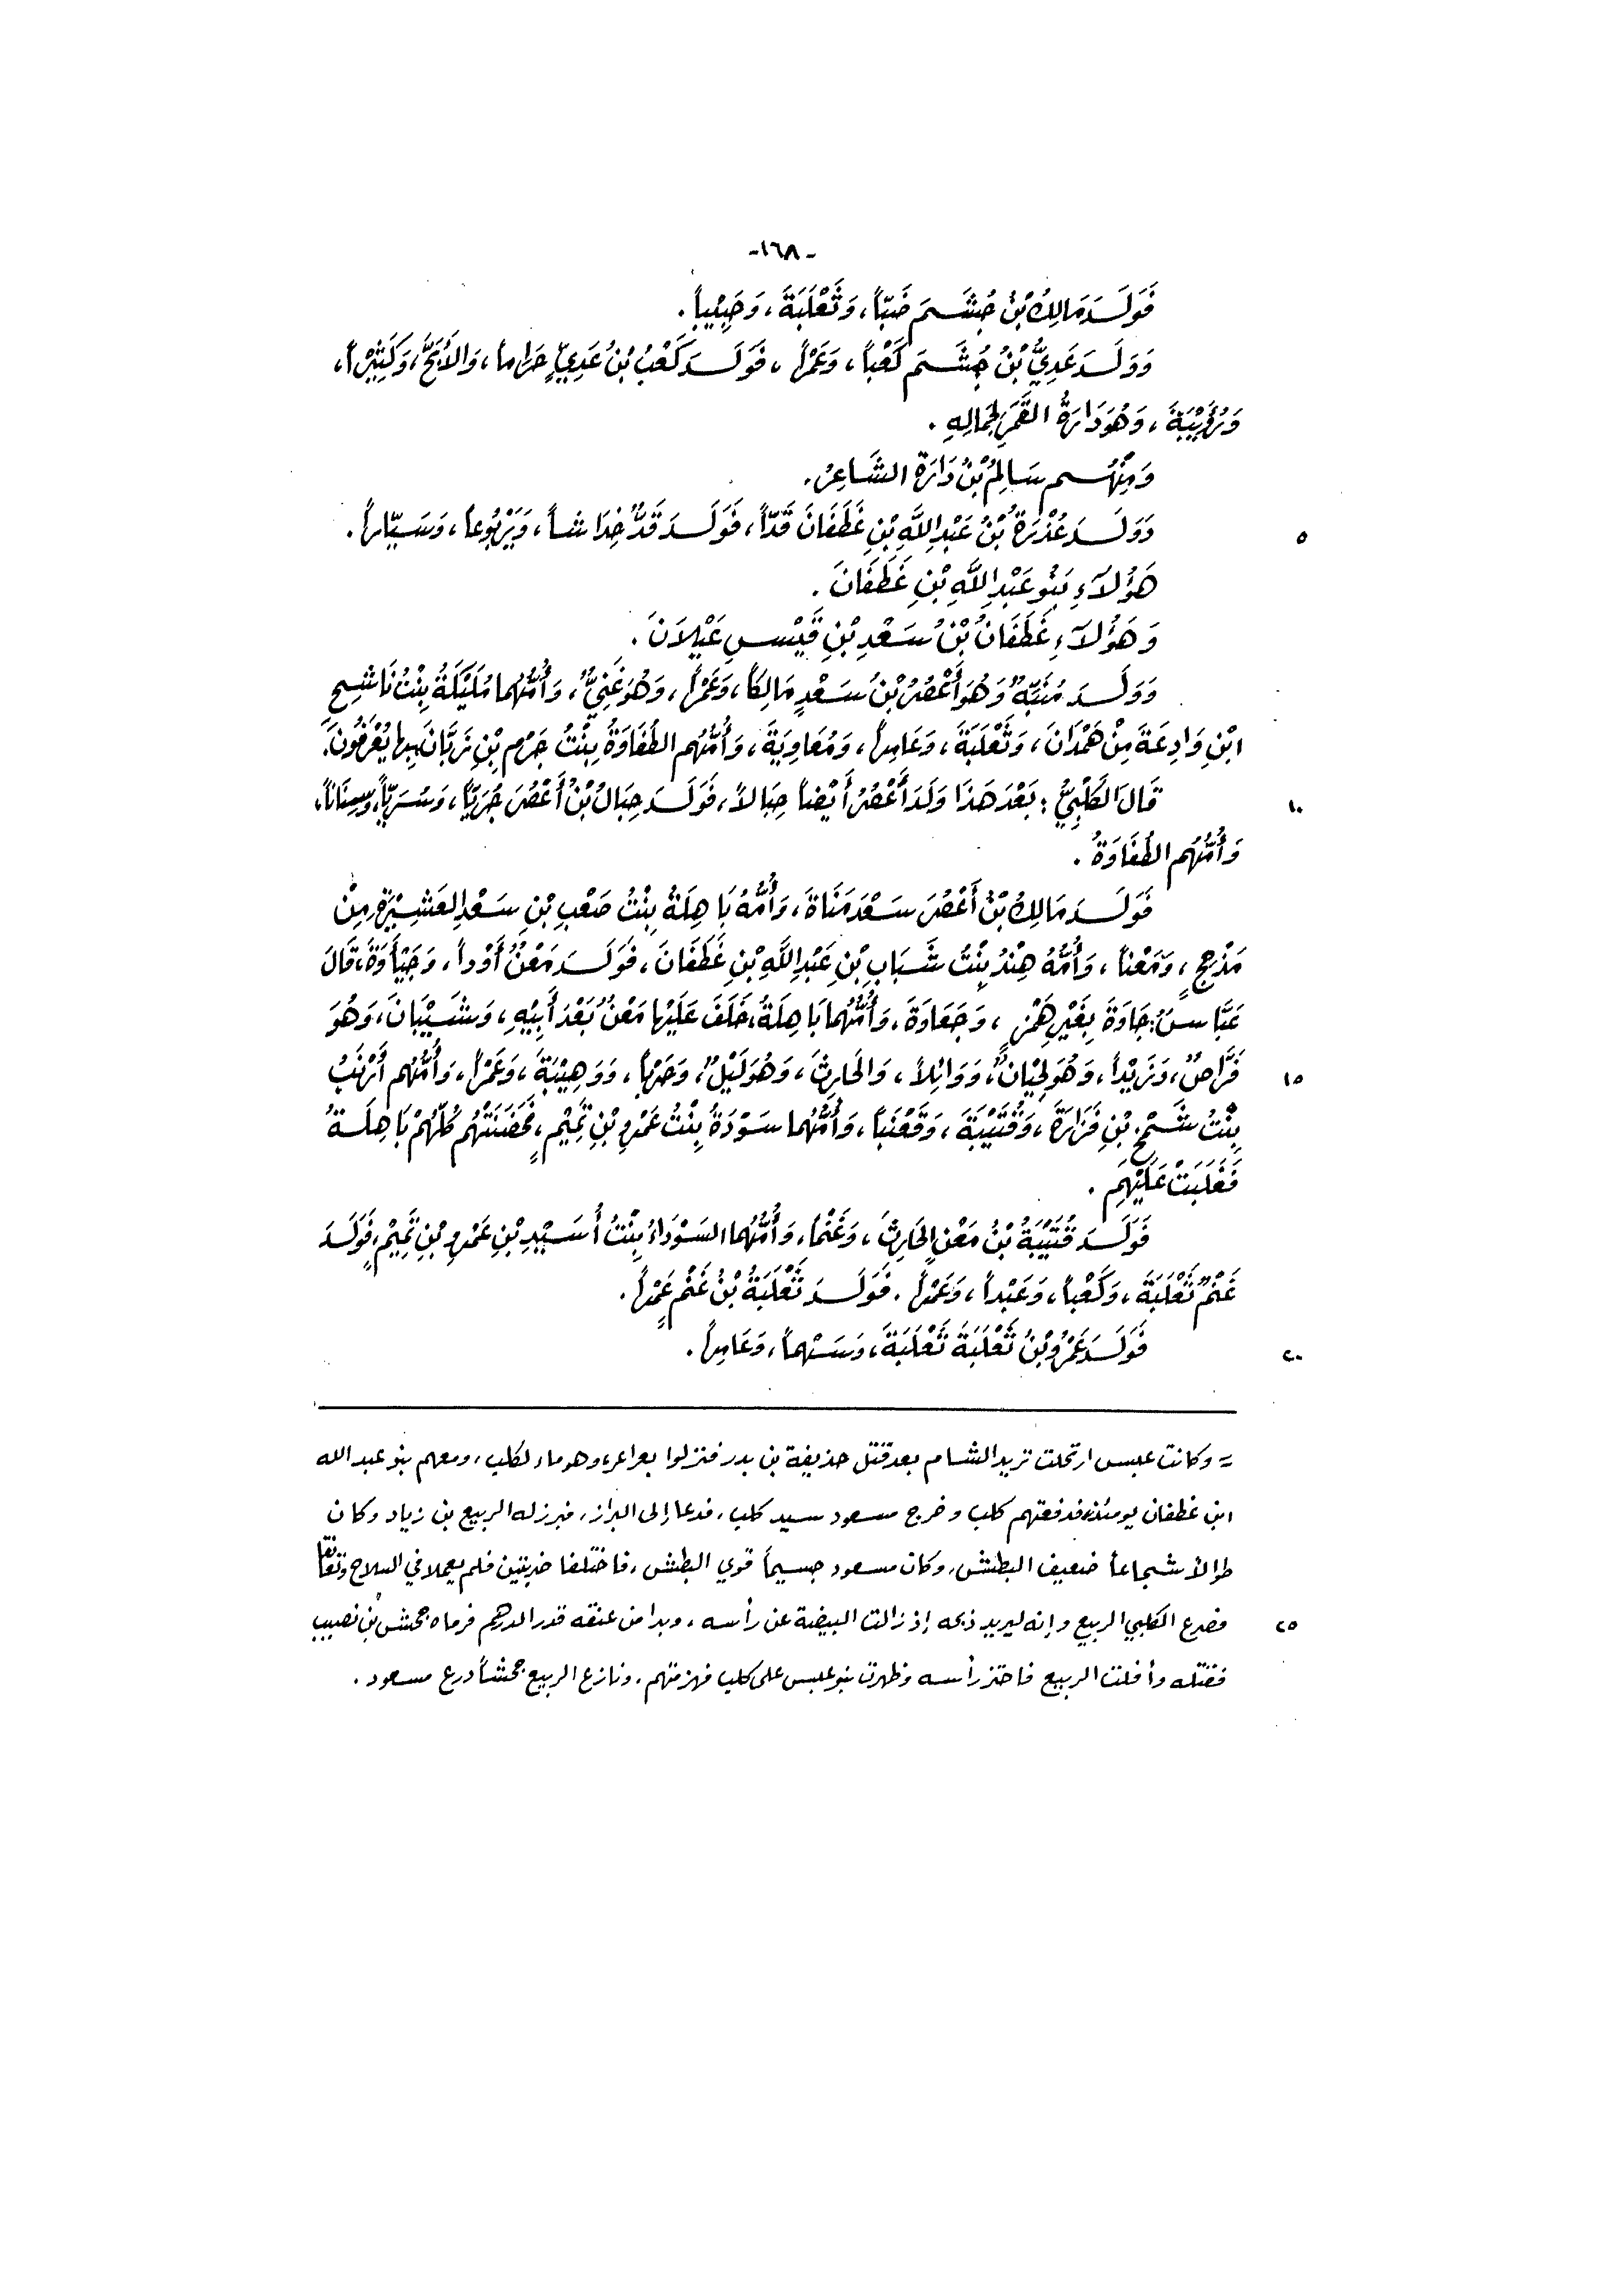 -١٦٨-
فَوَلَدَ مَالِكُ بْنُ جُشَمَ ضَبّاً، وَثَعْلَبَةَ، وَحَبِيْباً.
وَوَلَدَ عَدِيُّ بْنُ جُشَمَ كَعْباً، وَعَمْراً، فَوَلَدَ كَعْبُ بْنُ عَدِيٍّ حَرَاماً، وَالأَبَحَّ، وَكَثِيْراً،
وَرُؤَيْبَةَ، وَهُوَ دَارَةُ القَمَرِ لِجَمَالِهِ.
وَمِنْهُم سَالِمُ بْنُ دَارَةَ الشَّاعِرُ.
٥ وَوَلَدَ عُذْرَةُ بْنُ عَبْدِ اللَّهِ بْنِ غَطَفَانَ قَدّاً، فَوَلَدَ قَدٌّ خِدَاشاً، وَيَرْبُوعاً، وَسَيَّاراً.
هَؤُلاَءِ بَنُو عَبْدِ اللَّهِ بْنِ غَطَفَانَ.
وَهَؤُلاَءِ غَطَفَانُ بْنُ سَعْدِ بْنِ قَيْسِ عَيْلاَنَ.
وَوَلَدَ مُنَبِّهٌ وَهُوَ أَعْصُرُ بْنُ سَعْدٍ مَالِكاً، وَعَمْراً، وَهُوَ غَنِيٌّ، وَأُمُّهُما مُلَيْكَةُ بِنْتُ نَاشِجِ
ابْنِ وَادِعَةَ مِنْ هَمْدَانَ، وَثَعْلَبَةَ، وَعَامِراً، وَمُعَاوِيَةَ، وَأُمُّهُم الطُّفَاوَةُ بِنْتُ جَرْمِ بْنِ رَبَّانَ بِها يُعْرَفُونَ.
١٠ قَالَ الكَلْبِيُّ: بَعْدَ هَذَا وَلَدَ أَعْصُرُ أَيْضاً حِبَالاً، فَوَلَدَ حِبَالُ بْنُ أَعْصُرَ جُرَيّاً، وَسُرَيّاً، وَسِنَاناً،
وَأُمُّهُم الطُّفَاوَةُ.
فَوَلَدَ مَالِكُ بْنُ أَعْصُرَ سَعْدَ مَنَاةَ، وَأُمُّهُ بَاهِلَةُ بِنْتُ صَعْبِ بْنِ سَعْدِ العَشِيْرَةِ مِنْ
مَذْحِجٍ، وَمَعْناً، وَأُمُّهُ هِنْدُ بِنْتُ شَبَابِ بْنِ عَبْدِ اللَّهِ بْنِ غَطَفَانَ، فَوَلَدَ مَعْنٌ أَوْداً، وَجَيْأَوَةَ، قَالَ
عَبَّاسٌ: جَاوَةَ بِغَيْرِ هَمْزٍ، وَجَعَاوَةَ، وَأُمُّهُما بَاهِلَةُ، خَلَفَ عَلَيْها مَعْنٌ بَعْدَ أَبِيْهِ، وَشَيْبَانَ، وَهُوَ
١٥ فَرَّاصٌ، وَزَيْداً، وَهُوَ لِحْيَانٌ، وَوَائِلاً، وَالحَارِثَ، وَهُوَ لَيْلٌ، وَحَرْباً، وَوَهِيْبَةَ، وَعَمْراً، وَأُمُّهُم أَرْنَبُ
بِنْتُ شَمْخِ بْنِ فَزَارَةَ، وَقُتَيْبَةَ، وَقَعْنَباً، وَأُمُّهُما سَوْدَةُ بِنْتُ عَمْرِو بْنِ تَمِيْمٍ، فَحَضَنَتْهُم كُلَّهُمْ بَاهِلَةُ
فَغَلَبَتْ عَلَيْهِم.
فَوَلَدَ قُتَيْبَةُ بْنُ مَعْنٍ الحَارِثَ، وَغَنْماً، وَأُمُّهُما السَّوْدَاءُ بِنْتُ أُسَيِّدِ بْنِ عَمْرِو بْنِ تَمِيْمٍ، فَوَلَدَ
غَنْمٌ ثَعْلَبَةَ، وَكَعْباً، وَعَبْداً، وَعَمْراً. فَوَلَدَ ثَعْلَبَةُ بْنُ غَنْمٍ عَمْراً.
٢٠ فَوَلَدَ عَمْرُو بْنُ ثَعْلَبَةَ ثَعْلَبَةَ، وَسَهْماً، وَعَامِراً.
= وكانت عبس ارتحلت تريد الشام بعد قتل حذيفة بن بدر فنزلوا بعراعر، وهو ماء لكلب، ومعهم بنو عبد الله
ابن غطفان يومئذ، فدفعتهم كلب وخرج مسعود سيد كلب، فدعا إلى البراز، فبرز له الربيع بن زياد وكان
طوالاً شجاعاً ضعيف البطش، وكان مسعود جسيماً قوي البطش، فاختلفا ضربتين فلم يعملا في السلاح وتعانقا
٢٥ فصرع الكلبي الربيع وإنه ليريد ذبحه إذ زالت البيضة عن رأسه، وبدا من عنقه قدر الدرهم فرماه جحش بن نصيب
فقتله وأفلت الربيع فاحتز رأسه وظهرت بنو عبس على كلب فهزمتهم. ونازع الربيع جحشاً درع مسعود.